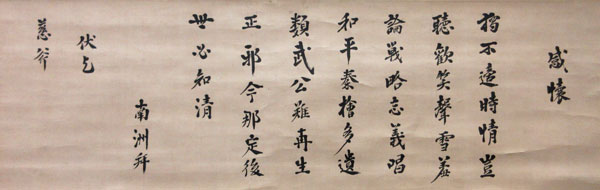 感懷
獨不適時情豈
聽歡笑聲雪羞
論戰略忘義唱
和平秦檜多遺
類武公難再生
正邪今那定後
世必知清
南洲拜
伏乞
慈斧